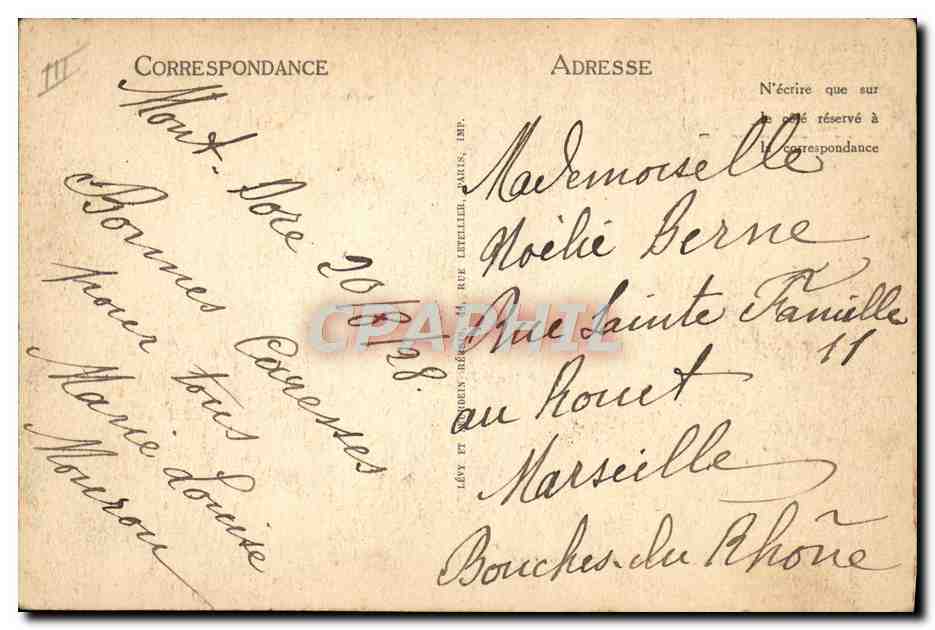 III
CORRESPONDANCE
Mont-Dore 20/8/28.
Bonnes Caresses
pour tous
Marie Louise
Mouron
LÉVY ET NEURDEIN RÉUNIS, 44, RUE LETELLIER, PARIS, IMP.
ADRESSE
N'écrire que sur
le côté réservé à
la correspondance
Mademoiselle
Noélie Berne
Rue Sainte Famille
11
au Rouet
Marseille
Bouches-du Rhône
CPAPHIL